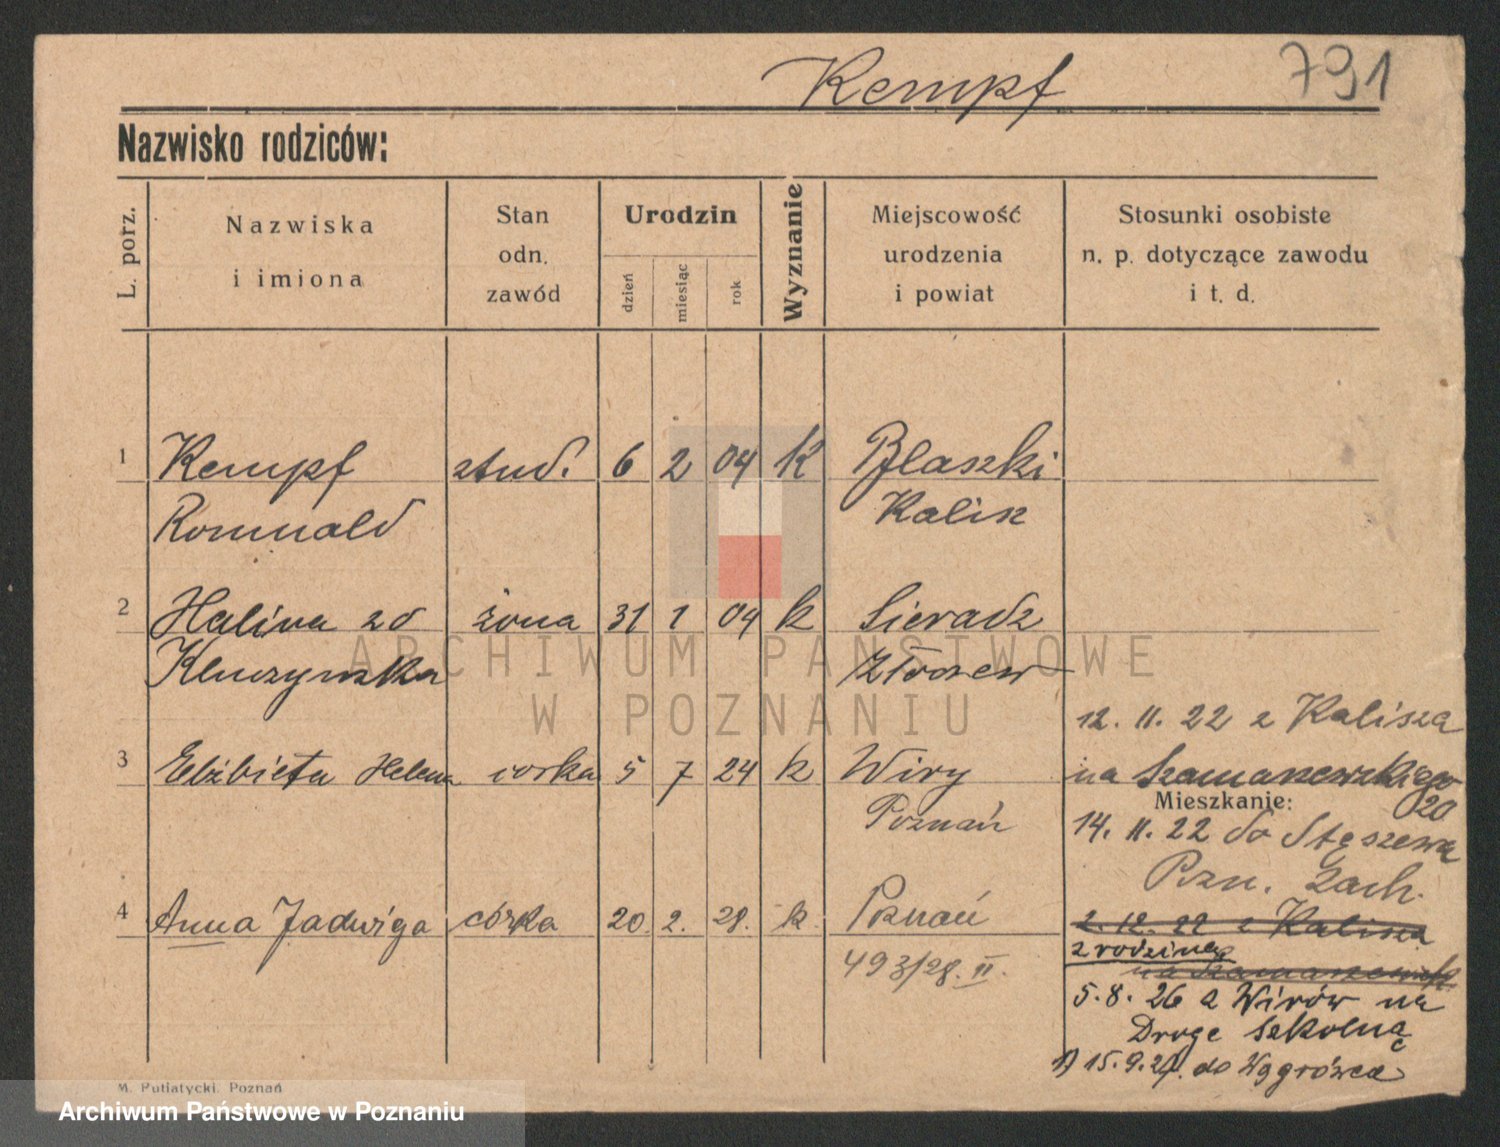 Kempf 791
Nazwisko rodziców:
L. porz.
Nazwiska
i imiona
Stan
odn.
zawód
Urodzin
dzień
miesiąc
rok
Wyznanie
Miejscowość
urodzenia
i powiat
Stosunki osobiste
n. p. dotyczące zawodu
i t. d.
1 Kempf stud. 6 2 04 K Błaszki
Romuald Kalisz
2 Halina zd żona 31 1 04 k Sieradz
Kluczynska Złoczew
12. 11. 22 z Kalisza
3 Elżbieta Helena corka 5 7 24 k Wiry na Szamarzewskiego
20
Mieszkanie:
Poznań 14. 11. 22 do Stęszewa
Pzn. Zach.
4 Anna Jadwiga córka 20. 2. 28. k. Poznań 2. 12. 22 z Kalisza
z rodziną
493/28. II. na Szamarzewsk.
5. 8. 26 z Wirów na
Drogę Szkolną
1) 15. 9. 29. do Wągrówca
M. Putiatycki. Poznań
ARCHIWUM PAŃSTWOWE
W POZNANIU
Archiwum Państwowe w Poznaniu